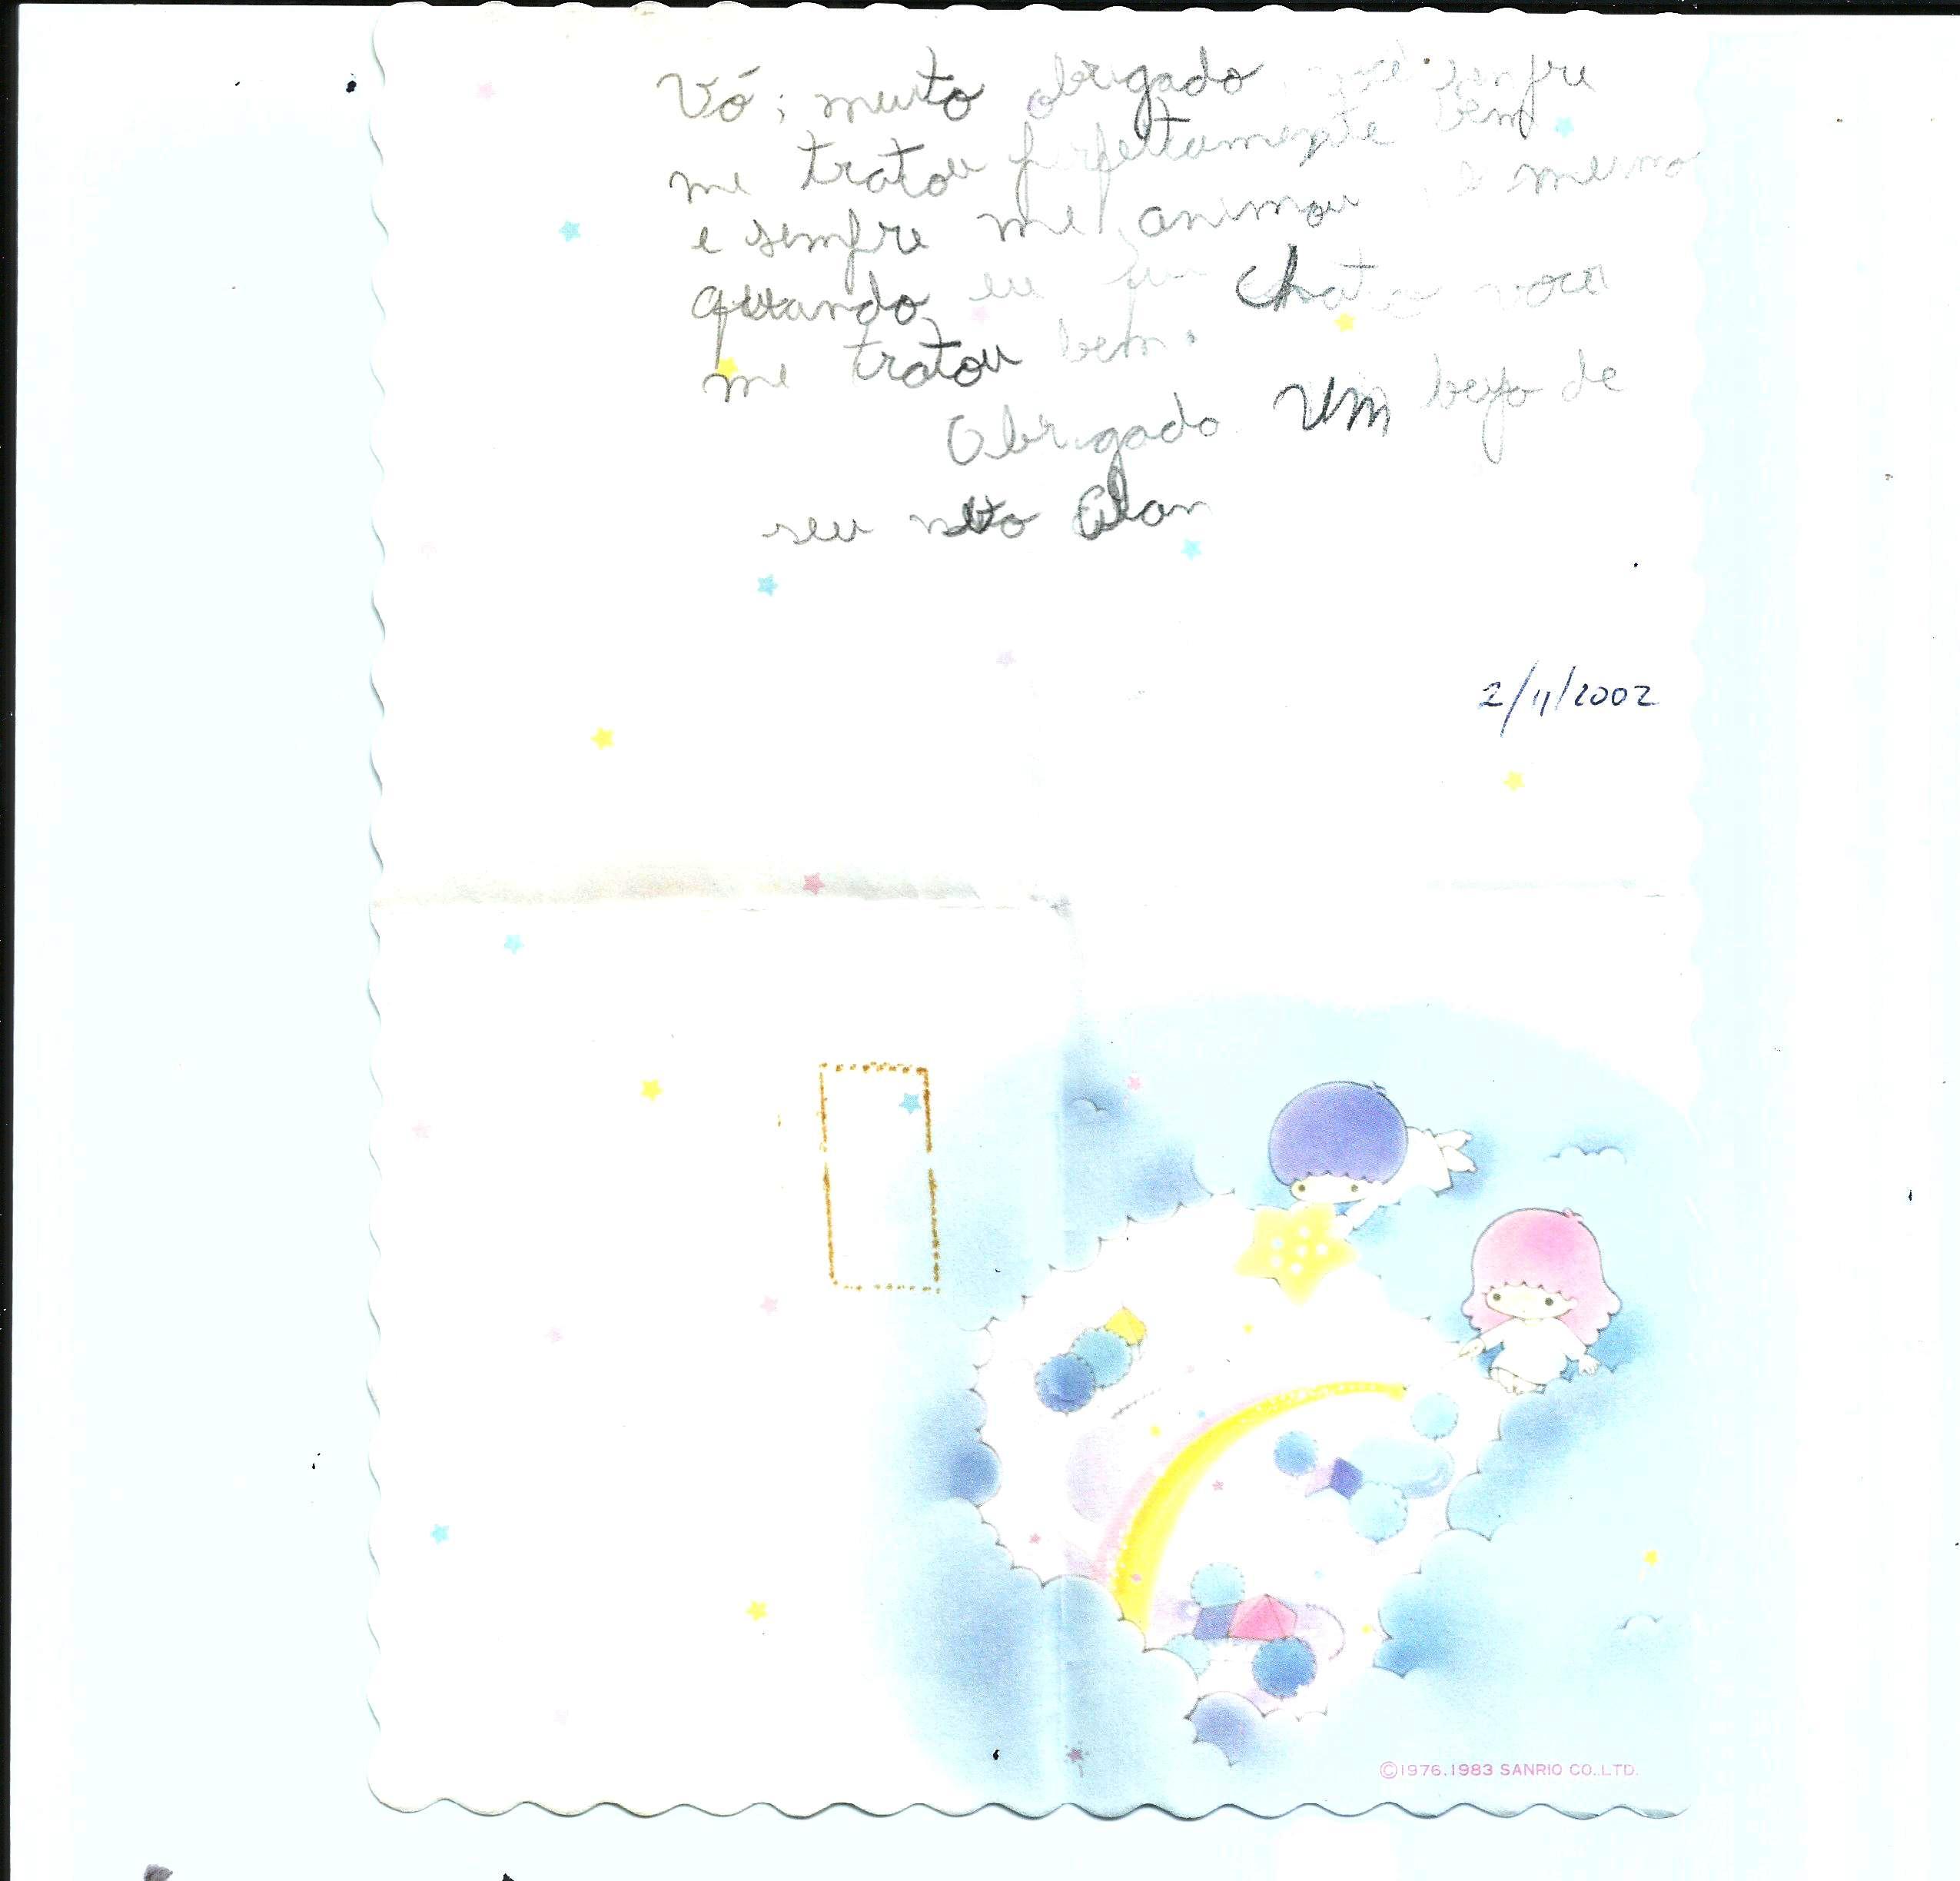 Vó; muito obrigado, você senfre
me tratou perfeitamente bem
e sempre me animou, e mesmo
quando eu fui chato você
me tratou bem.
Obrigado. Um beijo de
seu neto Alan
2/11/2002
©1976.1983 SANRIO CO.,LTD.